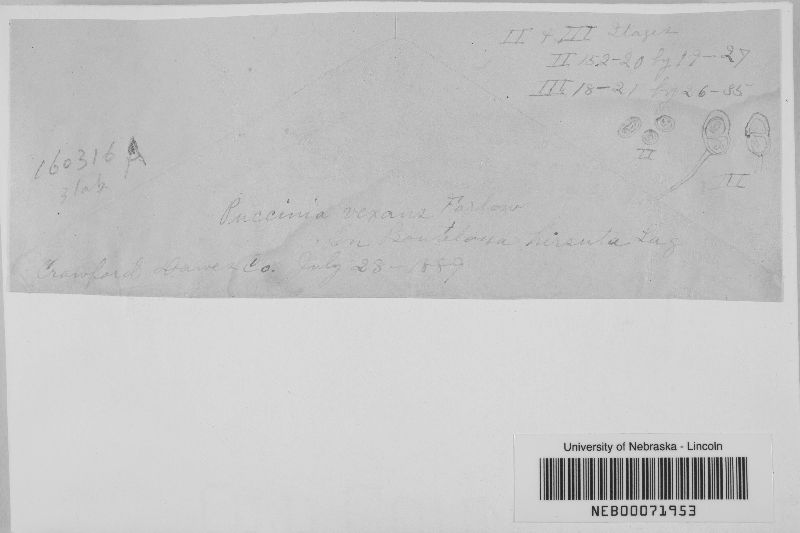 II & III Stages
II 15-20 by 19-27
III 18-21 by 26-35
II
III
160316 A
Puccinia vexans Farlow
on Bouteloua hirsuta Lag
Crawford Dawes Co. July 28-1889
University of Nebraska - Lincoln
NEB00071953